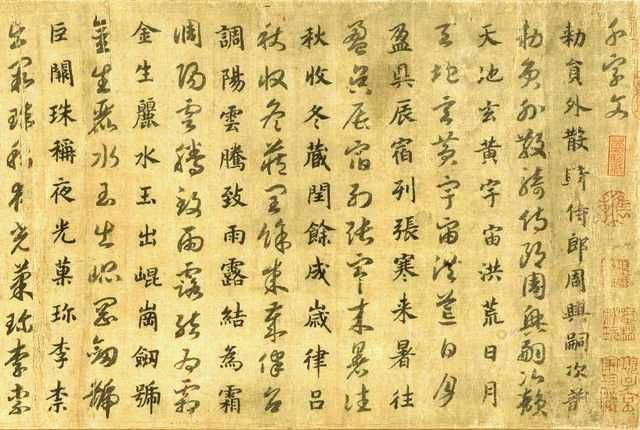 千字文
勅員外散騎侍郎周興嗣次韻
勅員外散騎侍郎周興嗣次韻
天地玄黄宇宙洪荒日月
天地玄黄宇宙洪荒日月
盈昃辰宿列張寒来暑往
盈昃辰宿列張寒来暑往
秋收冬蔵閏餘成歲律吕
秋收冬蔵閏餘成歲律吕
調陽雲騰致雨露結為霜
調陽雲騰致雨露結為霜
金生麗水玉出崐崗劒號
金生麗水玉出崐崗劒號
巨闕珠稱夜光菓珎李柰
巨闕珠稱夜光菓珎李柰